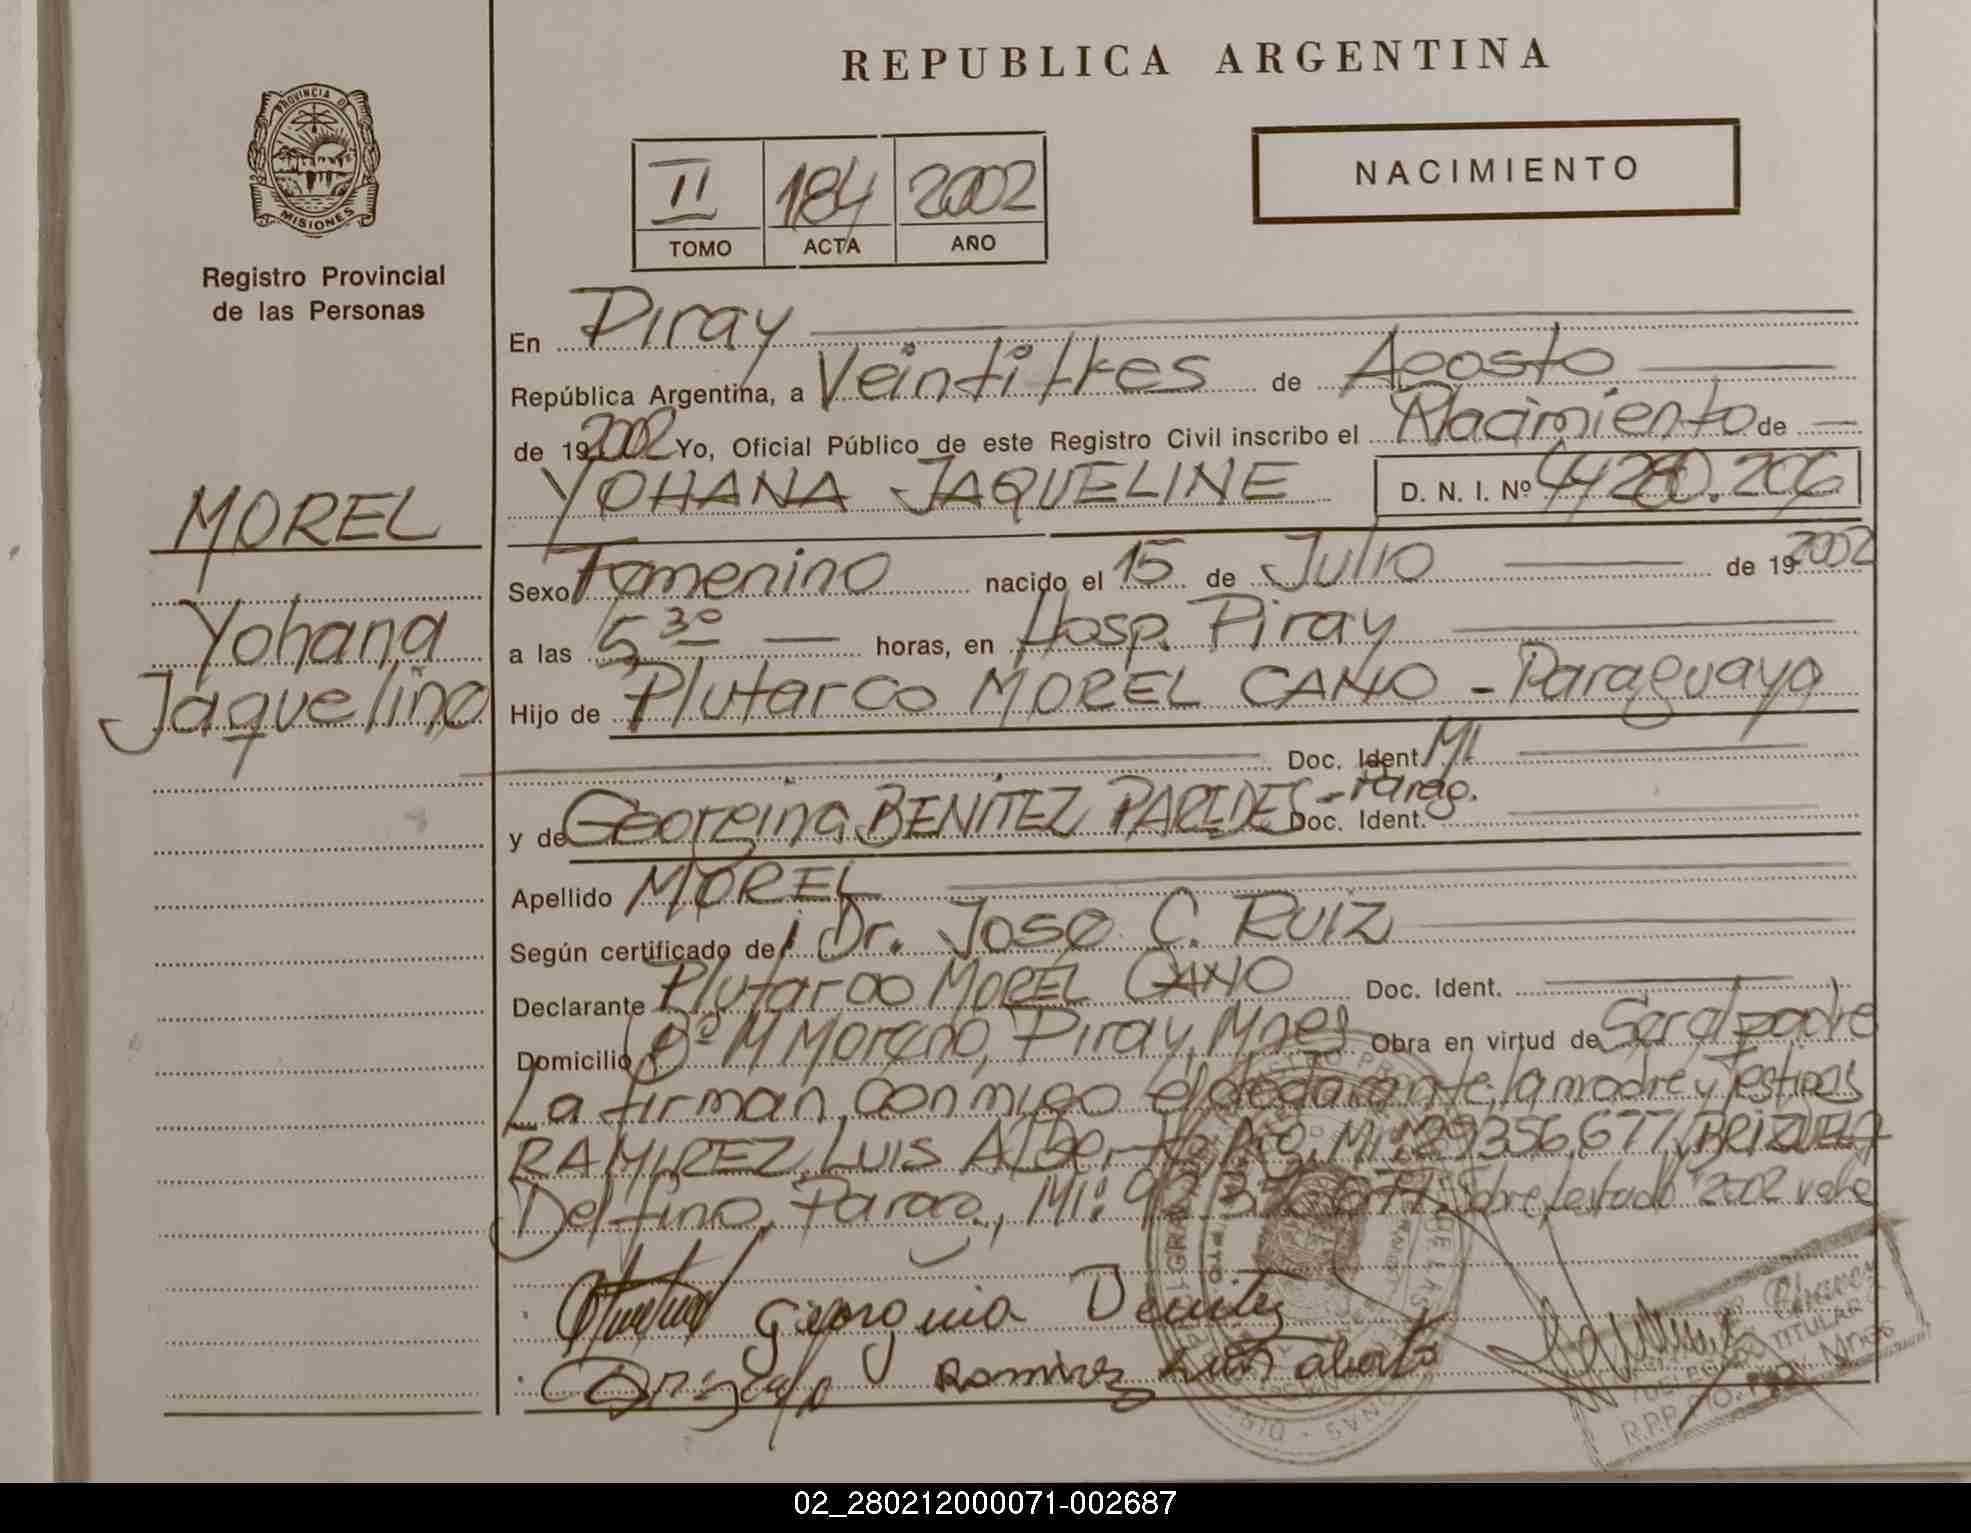 REPUBLICA ARGENTINA
PROVINCIA DE
MISIONES
Registro Provincial
de las Personas
II 184 2002
TOMO ACTA AÑO
NACIMIENTO
En Piray
República Argentina, a Veintitres de Agosto
de 19 2002 Yo, Oficial Público de este Registro Civil inscribo el Nacimiento de
YOHANA JAQUELINE D. N. I. Nº 44280.206
MOREL
Yohana
Jaqueline
Sexo Femenino nacido el 15 de Julio de 19 2002
a las 5 30 horas, en Hosp. Piray
Hijo de Plutarco MOREL CANO - Paraguayo
Doc. Ident. MI
y de Georgina BENITEZ PAREDES - Parag. Doc. Ident.
Apellido MOREL
Según certificado de Dr. José C. RUIZ
Declarante Plutarco MOREL CANO Doc. Ident.
Domicilio Bº M Moreno, Piray, Mnes Obra en virtud de Ser el padre
La firman conmigo el declarante, la madre y testigos
RAMIREZ, LUIS Alberto, Arg. MI: 29356,677, BRIZUELA
Delfino, Parag., MI: 92 Sobre testado 2002 vale
Georguia Benitez
Ramirez Luis alberto
TITULAR
R.P.P. PTO. PIRAY Mnes
02_280212000071-002687